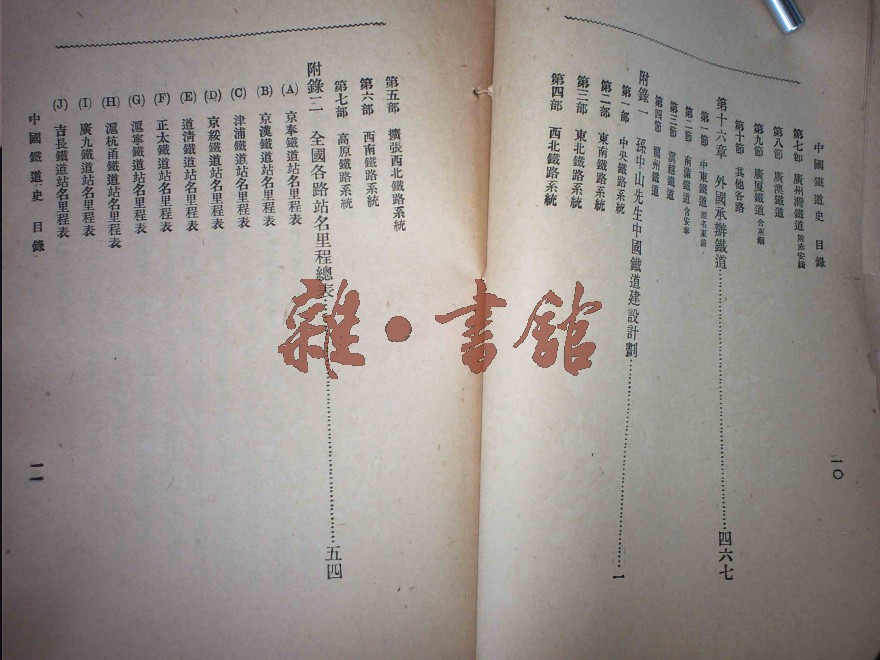 中國鐵道史 目錄
第七節 廣州灣鐵道 附赤安綫
第八節 廣澳鐵道
第九節 廣厦鐵道
第十節 其他各路
第十六章 外國承辦鐵道…………四六七
第一節 中東鐵道 原名東淸
第二節 南滿鐵道 含安奉
第三節 滇越鐵道
第四節 龍州鐵道
附錄一 孫中山先生中國鐵道建設計劃…………一
第一部 中央鐵路系統
第二部 東南鐵路系統
第三部 東北鐵路系統
第四部 西北鐵路系統
一〇
第五部 擴張西北鐵路系統
第六部 西南鐵路系統
第七部 高原鐵路系統
附錄二 全國各路站名里程總表…………五四
(A) 京奉鐵道站名里程表
(B) 京漢鐵道站名里程表
(C) 津浦鐵道站名里程表
(D) 京綏鐵道站名里程表
(E) 道淸鐵道站名里程表
(F) 正太鐵道站名里程表
(G) 滬寧鐵道站名里程表
(H) 滬杭甬鐵道站名里程表
(I) 廣九鐵道站名里程表
(J) 吉長鐵道站名里程表
中國鐵道史 目錄
一一
雜·書館